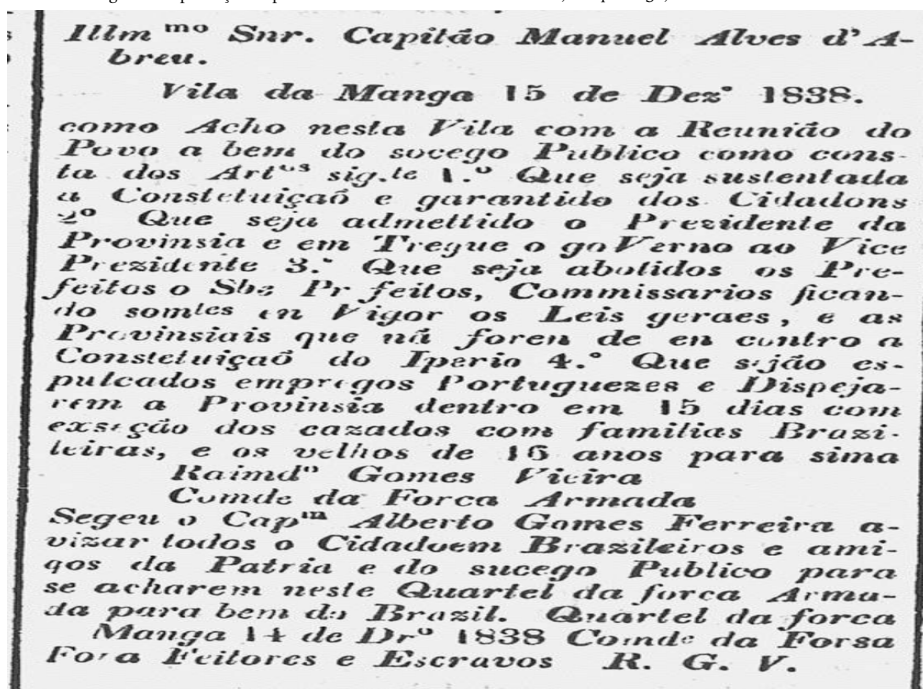 Illm ᵐᵒ Snr. Capitão Manuel Alves d'A-
breu.
Vila da Manga 15 de Dezº 1838.
como Acho nesta Vila com a Reunião do
Povo a bem do socego Publico como cons-
ta dos Artᵒˢ sig.te 1.º Que seja sustentada
a Constetuiçaõ e garantido dos Cidadons
2º Que seja admettido o Prezidente da
Provinsia e em Tregue o goVerno ao Vice
Prezidente 3.º Que seja abolidos os Pre-
feitos o Sbs Pr feitos, Commissarios fican-
do somtes en Vigor os Leis geraes, e as
Provinsiais que nã foren de en contro a
Constetuiçaõ do Iperio 4.º Que sejão es-
pulcados empregos Portuguezes e Dispeja-
rem a Provinsia dentro em 15 dias com
exseção dos cazados com familias Brazi-
leiras, e os velhos de 16 anos para sima
Raimdº Gomes Vieira
Comde da Forca Armada
Segeu o Capᵐ Alberto Gomes Ferreira a-
vizar todos o Cidadoem Brazileiros e ami-
gos da Patria e do sucego Publico para
se acharem neste Quartel da forca Arma-
da para bem do Brazil. Quartel da forca
Manga 14 de Drº 1838 Comde da Forsa
Fora Feitores e Escravos R. G. V.